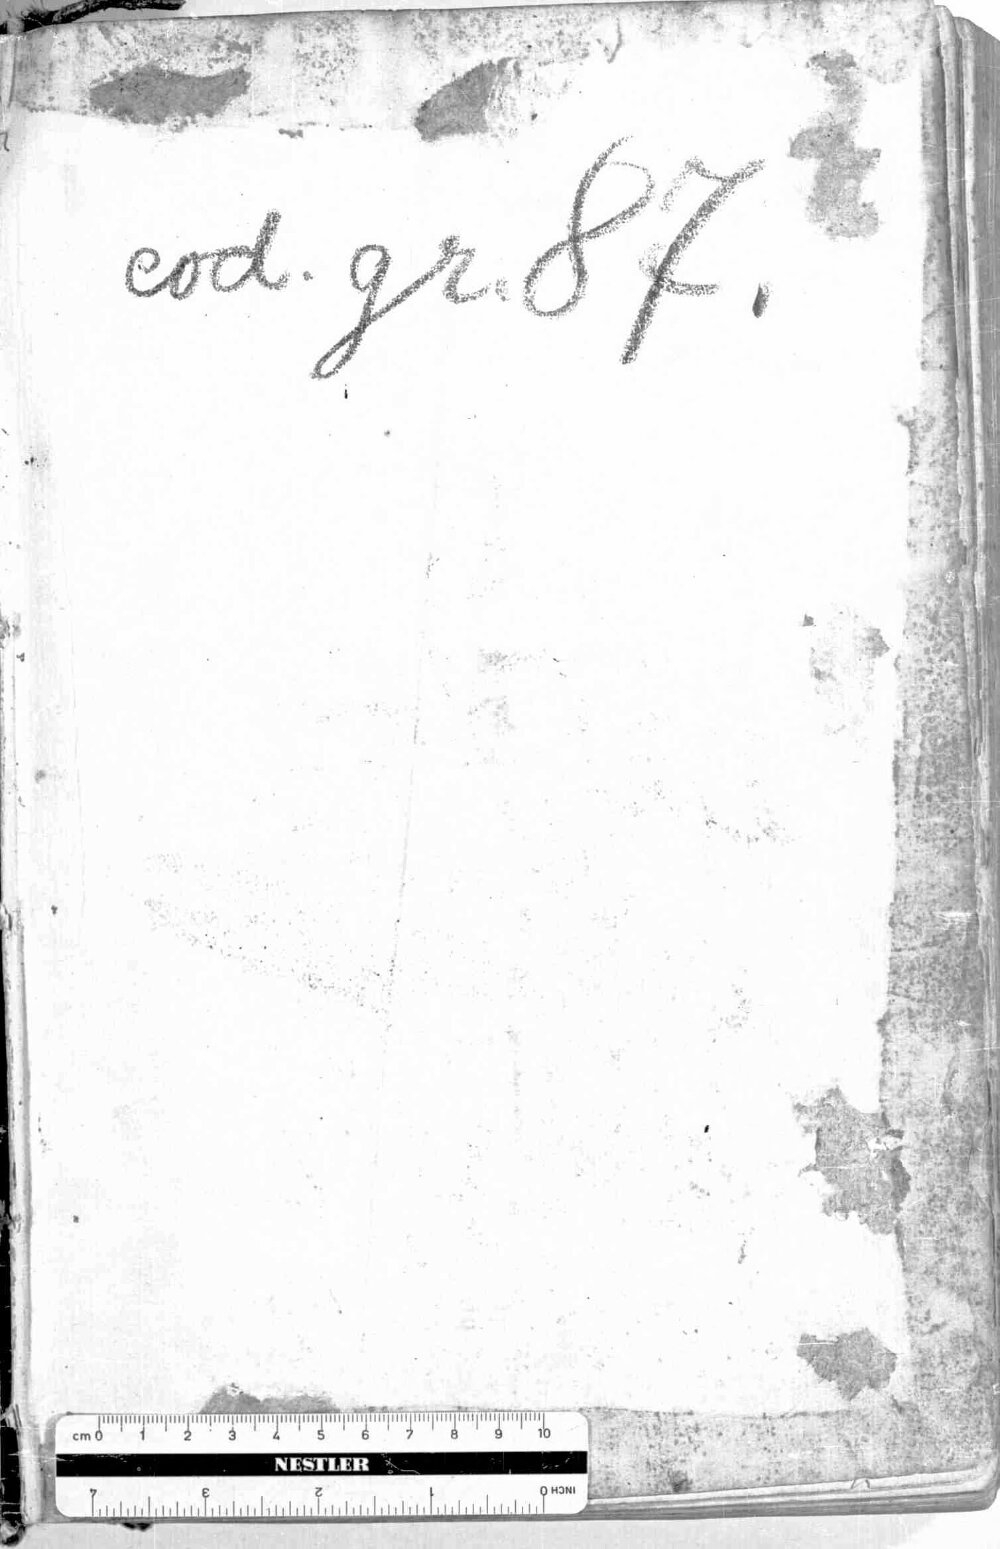 cod. gr. 87.
cm 0 1 2 3 4 5 6 7 8 9 10
NESTLER
4 3 2 1 0 INCH